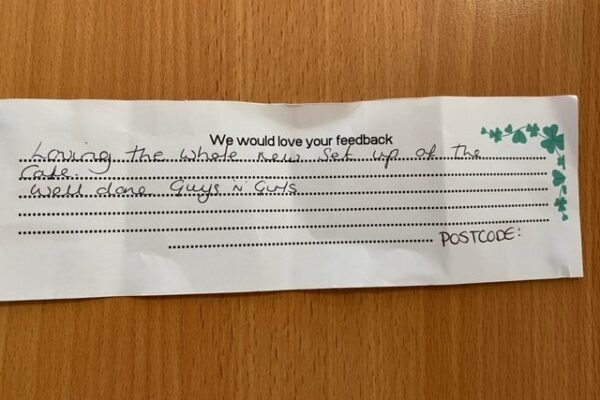 We would love your feedback
Loving the whole new set up of the
Cafe.
Well done Guys 'n' Girls
POSTCODE: